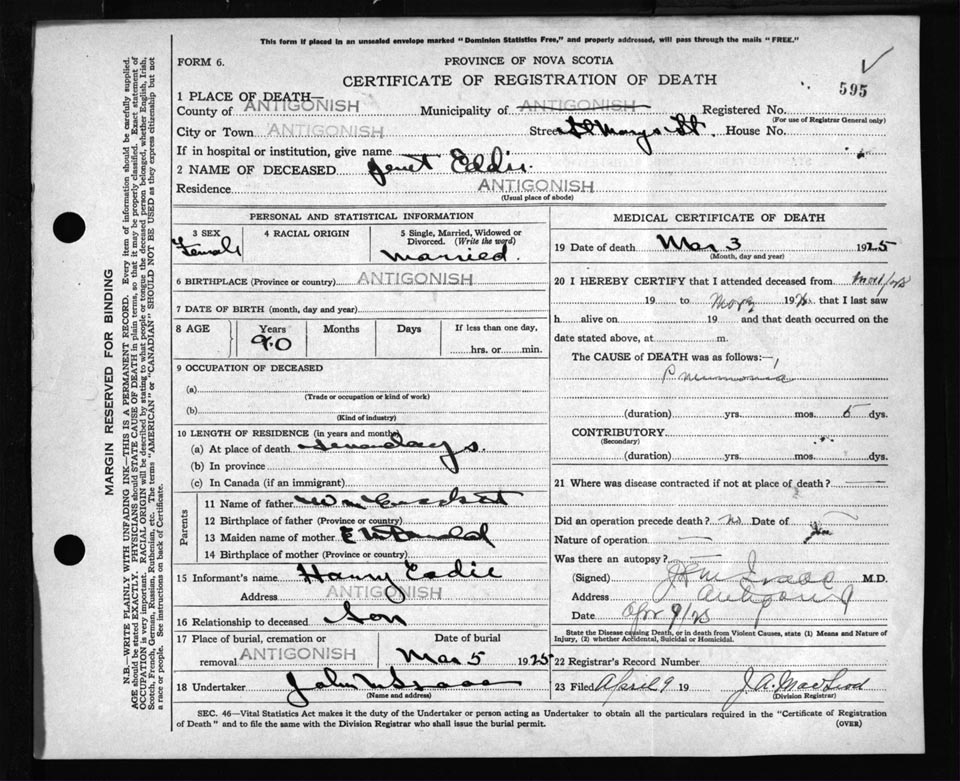 This form if placed in an unsealed envelope marked "Dominion Statistics Free," and properly addressed, will pass through the mails "FREE."
FORM 6.
PROVINCE OF NOVA SCOTIA
CERTIFICATE OF REGISTRATION OF DEATH
595
1 PLACE OF DEATH—
County of ANTIGONISH Municipality of ANTIGONISH Registered No.
(For use of Registrar General only)
City or Town ANTIGONISH Street St Marys St. House No.
If in hospital or institution, give name
2 NAME OF DECEASED Jenet Eddie.
Residence ANTIGONISH
(Usual place of abode)
PERSONAL AND STATISTICAL INFORMATION
3 SEX 4 RACIAL ORIGIN 5 Single, Married, Widowed or Divorced. (Write the word)
Female Married.
6 BIRTHPLACE (Province or country) ANTIGONISH
7 DATE OF BIRTH (month, day and year)
8 AGE Years Months Days If less than one day,
90 hrs. or min.
9 OCCUPATION OF DECEASED
(a)
(Trade or occupation or kind of work)
(b)
(Kind of industry)
10 LENGTH OF RESIDENCE (in years and months)
(a) At place of death days.
(b) In province
(c) In Canada (if an immigrant)
Parents
11 Name of father Wm
12 Birthplace of father (Province or country)
13 Maiden name of mother
14 Birthplace of mother (Province or country)
15 Informant's name Harry Eadie
Address ANTIGONISH
16 Relationship to deceased Son
17 Place of burial, cremation or removal ANTIGONISH Date of burial Mar 5 1925
18 Undertaker John
(Name and address)
MEDICAL CERTIFICATE OF DEATH
19 Date of death Mar 3 1925
(Month, day and year)
20 I HEREBY CERTIFY that I attended deceased from
19 to 19 that I last saw
h alive on 19 and that death occurred on the
date stated above, at m.
The CAUSE of DEATH was as follows:—
Pneumonia
(duration) yrs. mos. 5 dys.
CONTRIBUTORY
(Secondary)
(duration) yrs. mos. dys.
21 Where was disease contracted if not at place of death?
Did an operation precede death? no Date of
Nature of operation
Was there an autopsy?
(Signed) M.D.
Address Antigonish
Date Apr 9/25
State the Disease causing Death, or in death from Violent Causes, state (1) Means and Nature of Injury, (2) whether Accidental, Suicidal or Homicidal.
22 Registrar's Record Number
23 Filed April 9 19 J.A. MacLeod
(Division Registrar)
SEC. 46—Vital Statistics Act makes it the duty of the Undertaker or person acting as Undertaker to obtain all the particulars required in the "Certificate of Registration
of Death" and to file the same with the Division Registrar who shall issue the burial permit.
(OVER)
MARGIN RESERVED FOR BINDING
N.B.—WRITE PLAINLY WITH UNFADING INK—THIS IS A PERMANENT RECORD. Every item of information should be carefully supplied.
AGE should be stated EXACTLY. PHYSICIANS should STATE CAUSE OF DEATH in plain terms, so that it may be properly classified. Exact statement of
OCCUPATION is very important. RACIAL ORIGIN will be described by stating to what people or tongue the deceased person belonged, whether English, Irish,
Scotch, French, German, Russian, Ruthenian, etc. The terms "AMERICAN" or "CANADIAN" SHOULD NOT BE USED as they express citizenship but not
a race or people. See instructions on back of Certificate.